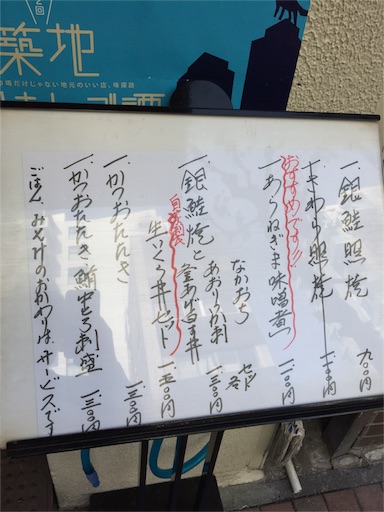 築地
一、銀鮭照焼 九〇〇円
一、さわら照焼 一、一〇〇円
おすすめです!!
一、あらねぎま味噌煮 一、一〇〇円
なかおち
あおりいか刺
釜あげ丼
セット各 一、三〇〇円
一、銀鮭焼と生いくら丼セット 一、五〇〇円
自家製
一、かつおたたき 一、三〇〇円
一、かつおたたき鮪中とろ刺盛 一、三〇〇円
ごはん、みそ汁のおかわりはサービスです